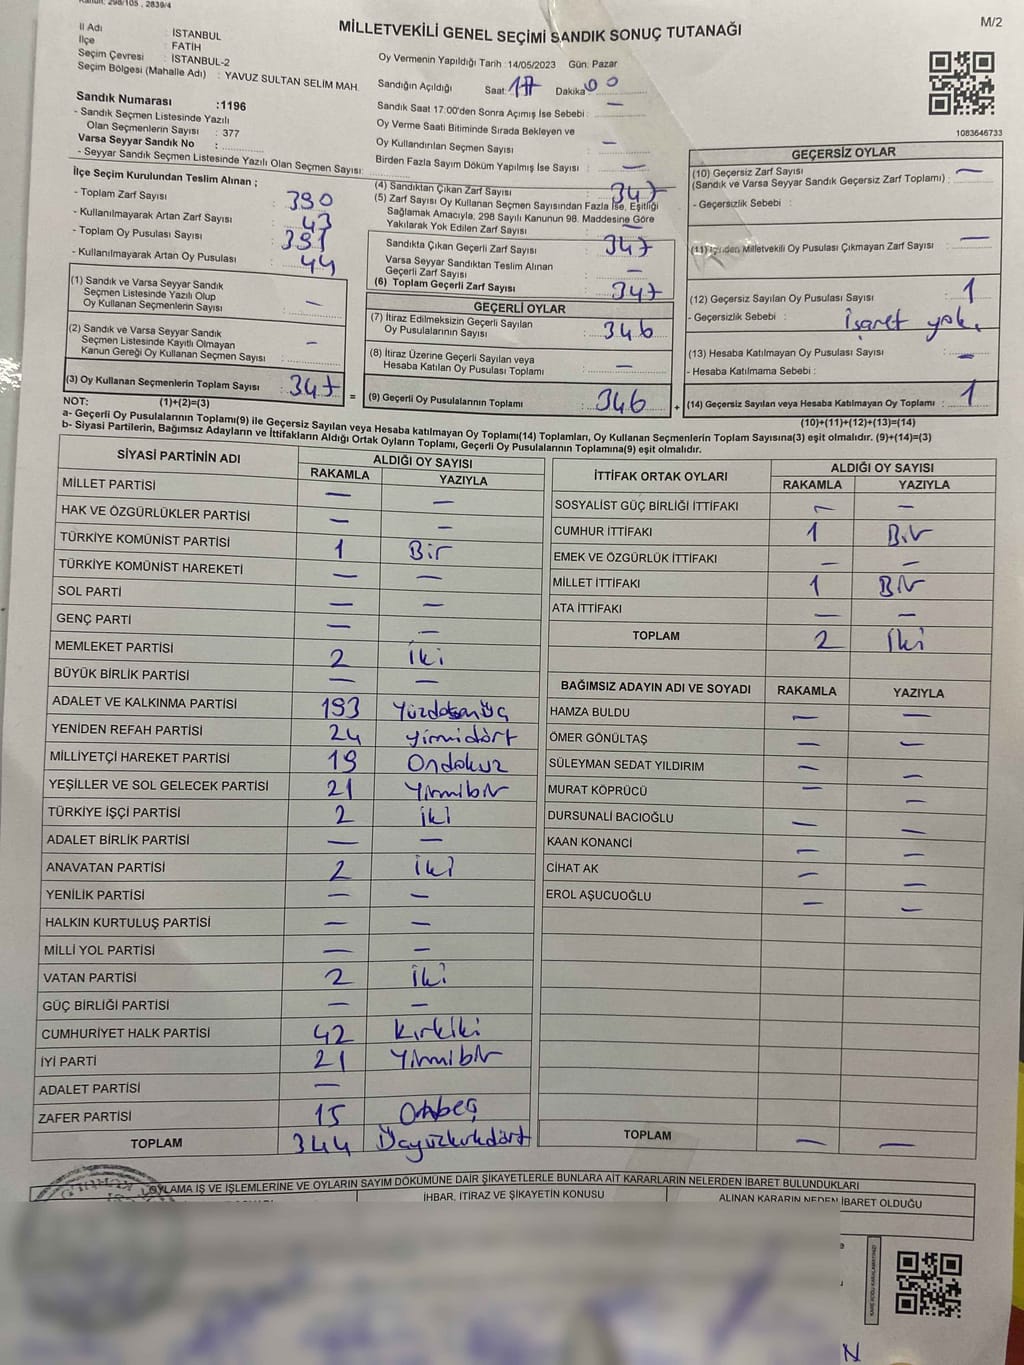 Kanun: 298/105 , 2839/4
MİLLETVEKİLİ GENEL SEÇİMİ SANDIK SONUÇ TUTANAĞI
M/2
İl Adı : İSTANBUL
İlçe : FATİH
Seçim Çevresi : İSTANBUL-2
Seçim Bölgesi (Mahalle Adı) : YAVUZ SULTAN SELİM MAH.
Sandık Numarası :1196
- Sandık Seçmen Listesinde Yazılı
Olan Seçmenlerin Sayısı : 377
Varsa Seyyar Sandık No :
- Seyyar Sandık Seçmen Listesinde Yazılı Olan Seçmen Sayısı:
Oy Vermenin Yapıldığı Tarih :14/05/2023 Gün: Pazar
Sandığın Açıldığı Saat: 17 Dakika: 00
Sandık Saat 17:00'den Sonra Açımış İse Sebebi : —
Oy Verme Saati Bitiminde Sırada Bekleyen ve
Oy Kullandırılan Seçmen Sayısı : —
Birden Fazla Sayım Döküm Yapılmış İse Sayısı : —
1083646733
İlçe Seçim Kurulundan Teslim Alınan ;
- Toplam Zarf Sayısı : 390
- Kullanılmayarak Artan Zarf Sayısı : 43
- Toplam Oy Pusulası Sayısı : 391
- Kullanılmayarak Artan Oy Pusulası : 44
(1) Sandık ve Varsa Seyyar Sandık
Seçmen Listesinde Yazılı Olup
Oy Kullanan Seçmenlerin Sayısı : —
(2) Sandık ve Varsa Seyyar Sandık
Seçmen Listesinde Kayıtlı Olmayan
Kanun Gereği Oy Kullanan Seçmen Sayısı : —
(3) Oy Kullanan Seçmenlerin Toplam Sayısı : 347
(4) Sandıktan Çıkan Zarf Sayısı : 347
(5) Zarf Sayısı Oy Kullanan Seçmen Sayısından Fazla İse, Eşitliği
Sağlamak Amacıyla, 298 Sayılı Kanunun 98. Maddesine Göre
Yakılarak Yok Edilen Zarf Sayısı : —
Sandıkta Çıkan Geçerli Zarf Sayısı : 347
Varsa Seyyar Sandıktan Teslim Alınan
Geçerli Zarf Sayısı : —
(6) Toplam Geçerli Zarf Sayısı : 347
GEÇERLİ OYLAR
(7) İtiraz Edilmeksizin Geçerli Sayılan
Oy Pusulalarının Sayısı : 346
(8) İtiraz Üzerine Geçerli Sayılan veya
Hesaba Katılan Oy Pusulası Toplamı : —
= (9) Geçerli Oy Pusulalarının Toplamı : 346
GEÇERSİZ OYLAR
(10) Geçersiz Zarf Sayısı : —
(Sandık ve Varsa Seyyar Sandık Geçersiz Zarf Toplamı) :
- Geçersizlik Sebebi :
(11) İçinden Milletvekili Oy Pusulası Çıkmayan Zarf Sayısı : —
(12) Geçersiz Sayılan Oy Pusulası Sayısı : 1
- Geçersizlik Sebebi : İşaret yok.
(13) Hesaba Katılmayan Oy Pusulası Sayısı : —
- Hesaba Katılmama Sebebi :
+ (14) Geçersiz Sayılan veya Hesaba Katılmayan Oy Toplamı : 1
NOT: (1)+(2)=(3) (10)+(11)+(12)+(13)=(14)
a- Geçerli Oy Pusulalarının Toplamı(9) ile Geçersiz Sayılan veya Hesaba katılmayan Oy Toplamı(14) Toplamları, Oy Kullanan Seçmenlerin Toplam Sayısına(3) eşit olmalıdır. (9)+(14)=(3)
b- Siyasi Partilerin, Bağımsız Adayların ve İttifakların Aldığı Ortak Oyların Toplamı, Geçerli Oy Pusulalarının Toplamına(9) eşit olmalıdır.
SİYASİ PARTİNİN ADI ALDIĞI OY SAYISI
RAKAMLA YAZIYLA
MİLLET PARTİSİ — —
HAK VE ÖZGÜRLÜKLER PARTİSİ — —
TÜRKİYE KOMÜNİST PARTİSİ 1 Bir
TÜRKİYE KOMÜNİST HAREKETİ — —
SOL PARTİ — —
GENÇ PARTİ — —
MEMLEKET PARTİSİ 2 İki
BÜYÜK BİRLİK PARTİSİ — —
ADALET VE KALKINMA PARTİSİ 193
YENİDEN REFAH PARTİSİ 24 yirmidört
MİLLİYETÇİ HAREKET PARTİSİ 19 Ondokuz
YEŞİLLER VE SOL GELECEK PARTİSİ 21 Yirmibir
TÜRKİYE İŞÇİ PARTİSİ 2 İki
ADALET BİRLİK PARTİSİ — —
ANAVATAN PARTİSİ 2 İki
YENİLİK PARTİSİ — —
HALKIN KURTULUŞ PARTİSİ — —
MİLLİ YOL PARTİSİ — —
VATAN PARTİSİ 2 İki
GÜÇ BİRLİĞİ PARTİSİ — —
CUMHURİYET HALK PARTİSİ 42 Kırkiki
İYİ PARTİ 21 Yirmibir
ADALET PARTİSİ —
ZAFER PARTİSİ 15 Onbeş
TOPLAM 344 Üçyüzkırkdört
İTTİFAK ORTAK OYLARI ALDIĞI OY SAYISI
RAKAMLA YAZIYLA
SOSYALİST GÜÇ BİRLİĞİ İTTİFAKI — —
CUMHUR İTTİFAKI 1 Bir
EMEK VE ÖZGÜRLÜK İTTİFAKI — —
MİLLET İTTİFAKI 1 Bir
ATA İTTİFAKI — —
TOPLAM 2 İki
BAĞIMSIZ ADAYIN ADI VE SOYADI RAKAMLA YAZIYLA
HAMZA BULDU — —
ÖMER GÖNÜLTAŞ — —
SÜLEYMAN SEDAT YILDIRIM — —
MURAT KÖPRÜCÜ — —
DURSUNALİ BACIOĞLU — —
KAAN KONANCİ — —
CİHAT AK — —
EROL AŞUCUOĞLU — —
TOPLAM — —
OYLAMA İŞ VE İŞLEMLERİNE VE OYLARIN SAYIM DÖKÜMÜNE DAİR ŞİKAYETLERLE BUNLARA AİT KARARLARIN NELERDEN İBARET BULUNDUKLARI
İHBAR, İTİRAZ VE ŞİKAYETİN KONUSU ALINAN KARARIN NEDEN İBARET OLDUĞU